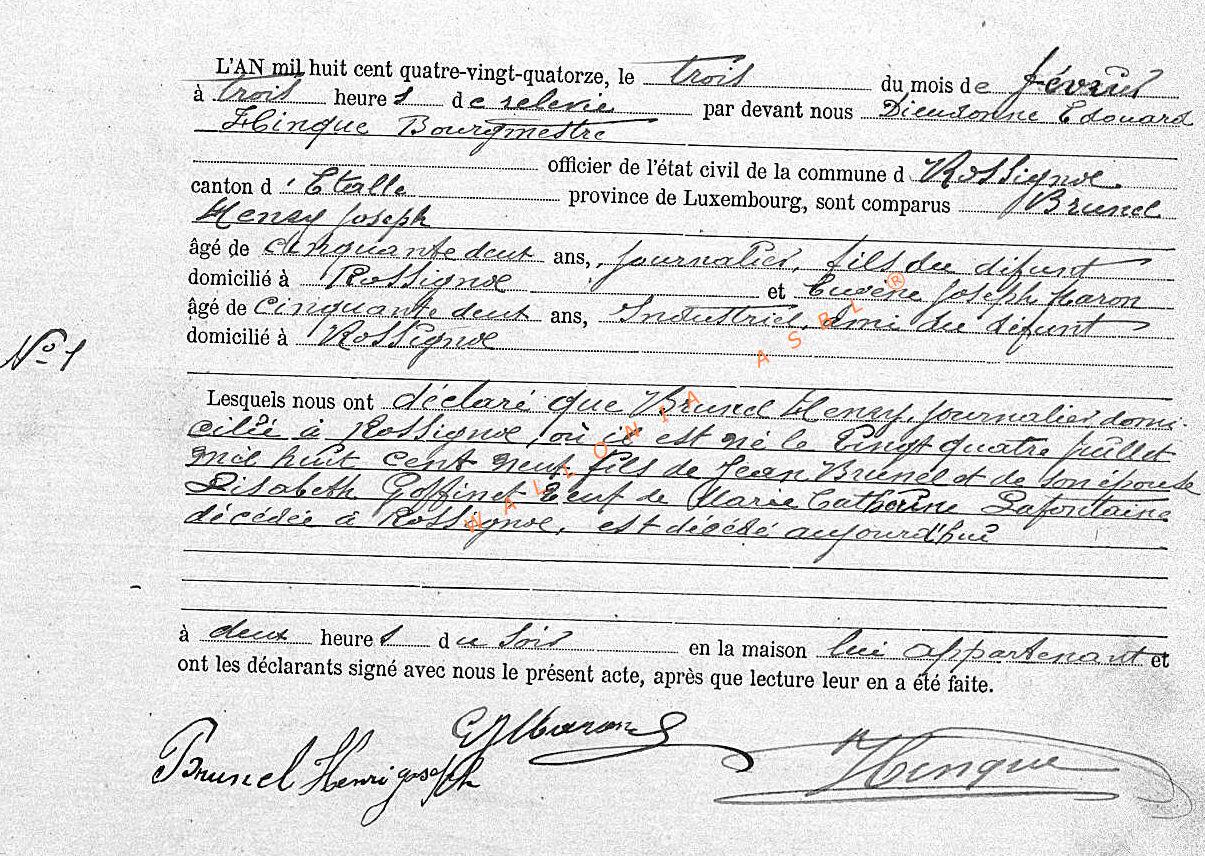 L'AN mil huit cent quatre-vingt-quatorze, le trois du mois de février
à trois heures de relevée par devant nous Dieudonné Edouard
Hinque Bourgmestre
officier de l'état civil de la commune d Rossignol
canton d'Etalle province de Luxembourg, sont comparus Brunel
Henry Joseph
âgé de cinquante deux ans, journalier, fils du défunt
domicilié à Rossignol et Eugène Joseph Maron
âgé de cinquante deux ans, Industriel, ami du défunt
domicilié à Rossignol
N° 1
Lesquels nous ont déclaré que Brunel Henry, journalier domi-
cilié à Rossignol, où il est né le vingt quatre juillet
mil huit cent neuf fils de Jean Brunel et de son épouse
Elisabeth Goffinet veuf de Marie Catherine Lafontaine
décédée à Rossignol, est décédé aujourd'hui
à deux heures du soir en la maison lui appartenant et
ont les déclarants signé avec nous le présent acte, après que lecture leur en a été faite.
Brunel Henri joseph EJMaron Hinque
WALLONIA ASBL ®